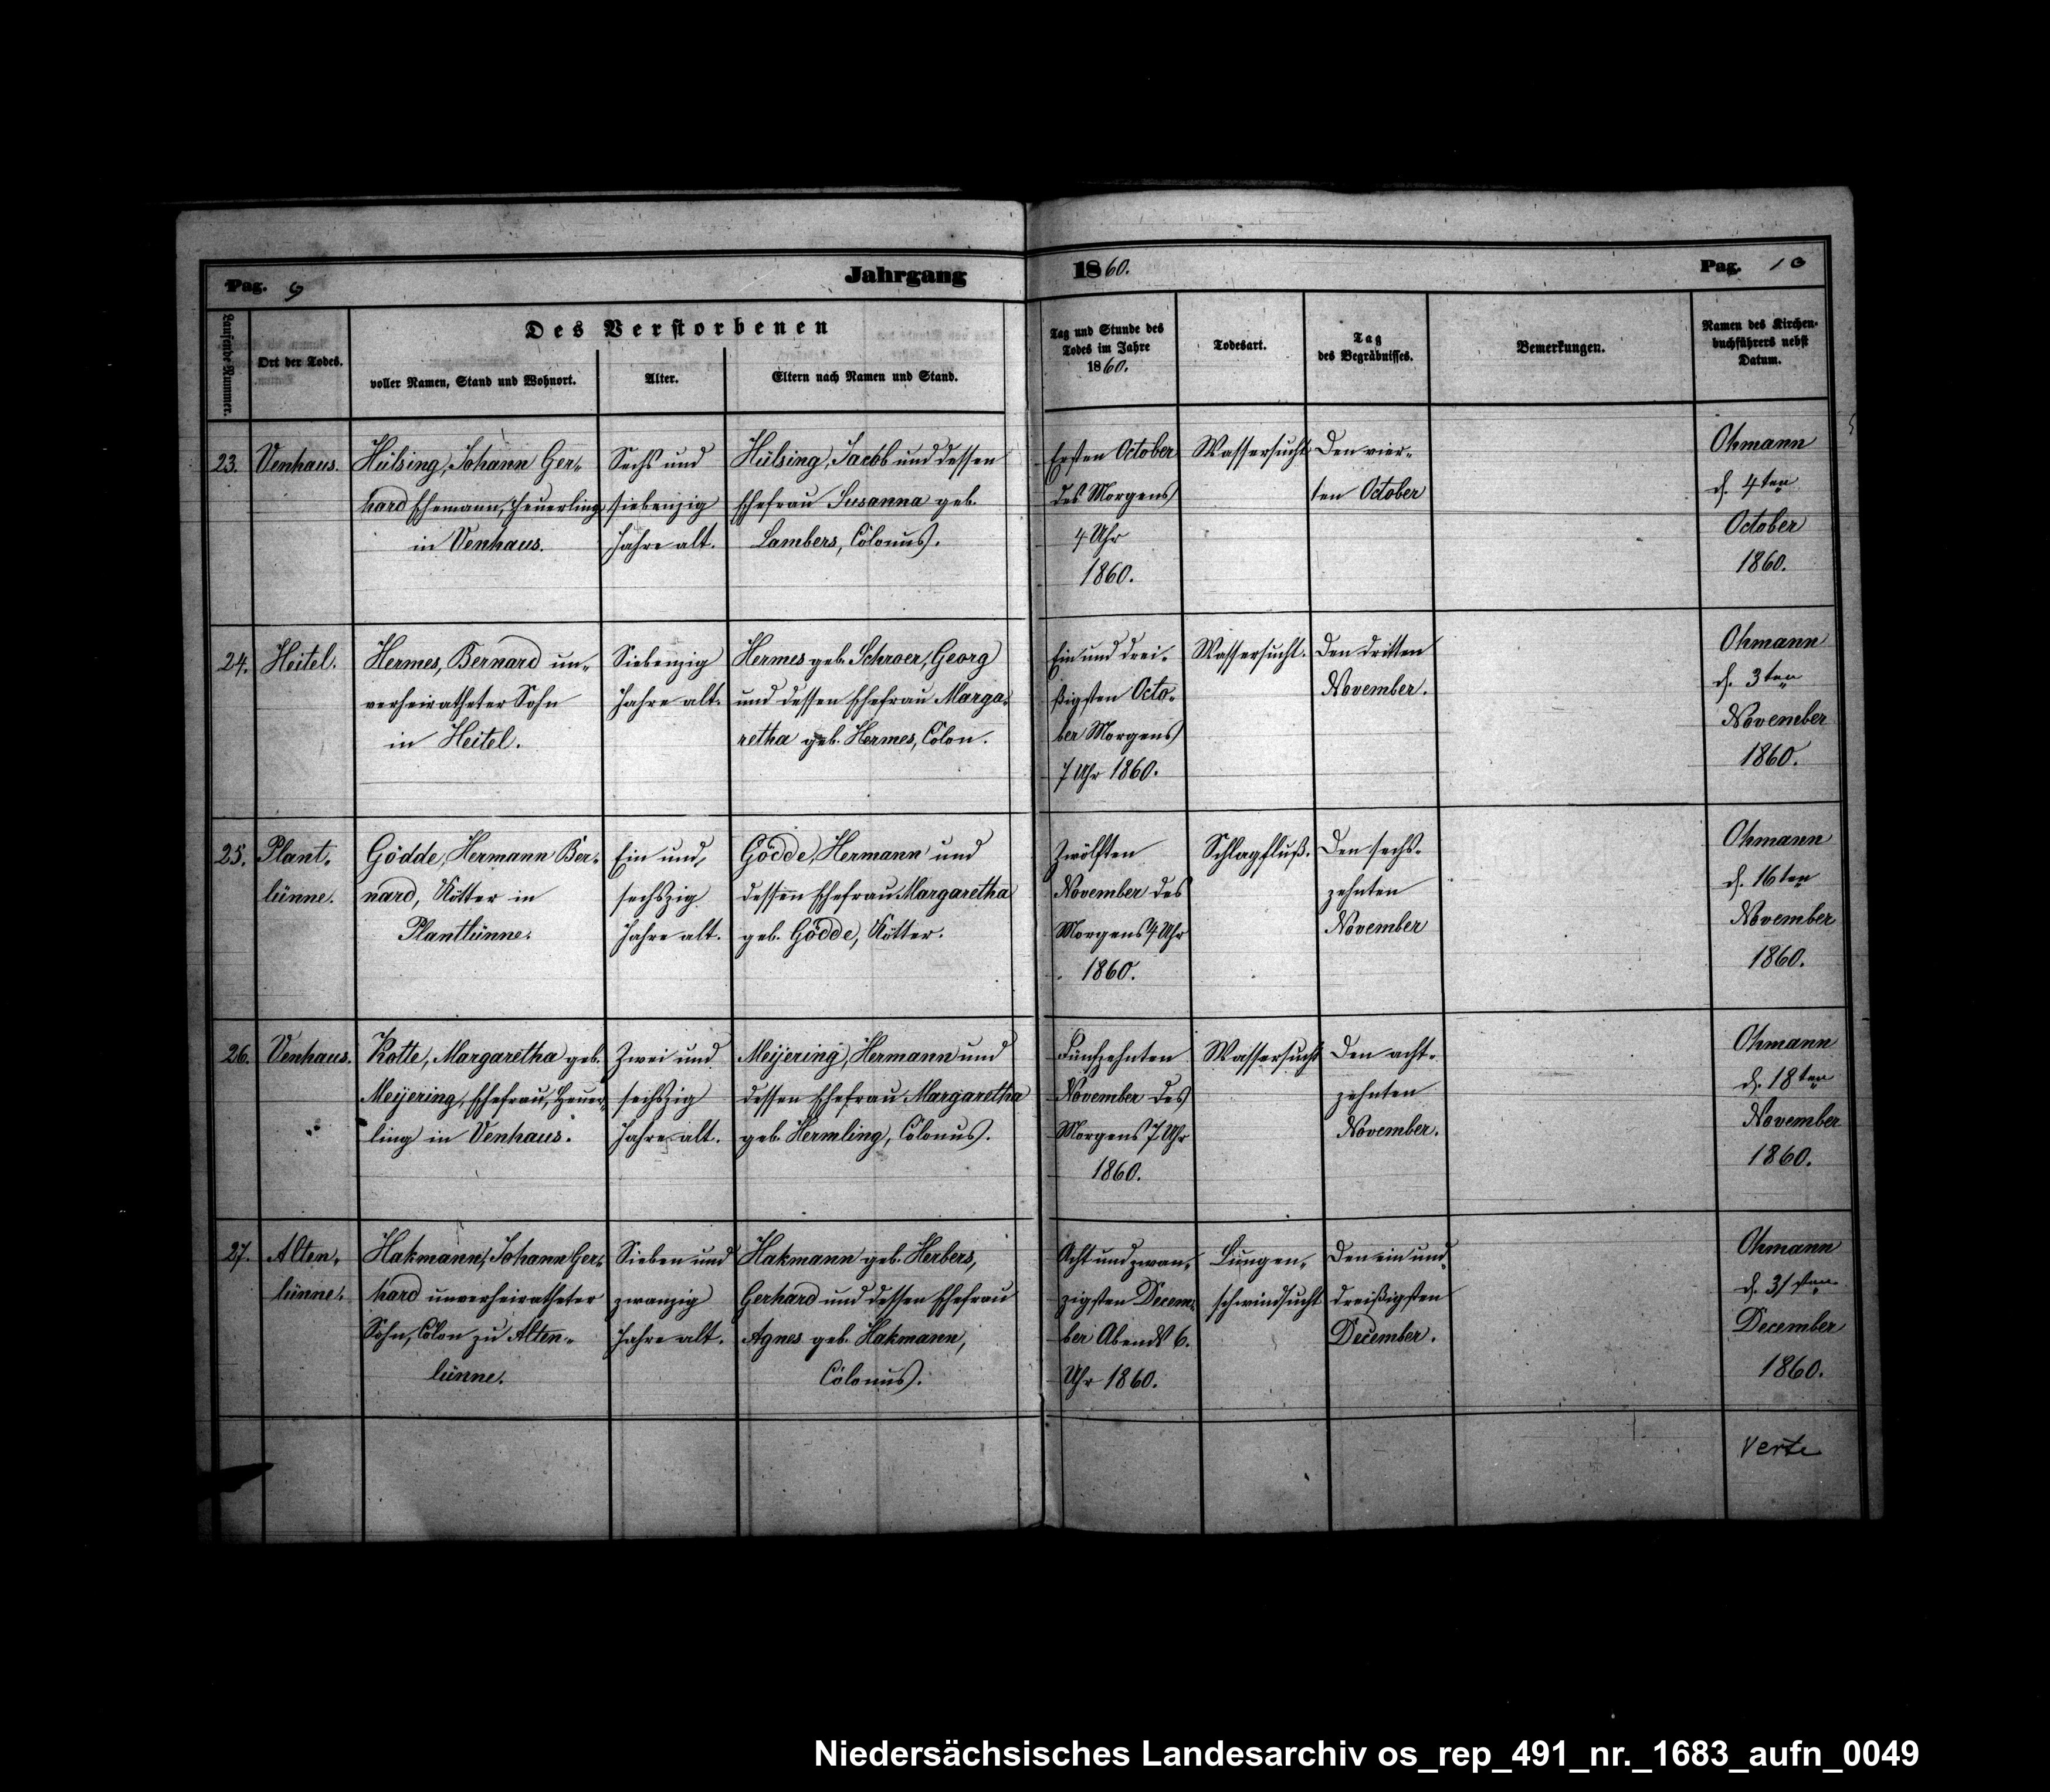 Pag. 9
Jahrgang
1860.
Pag. 10
Laufende Nummer.
Ort der Todes.
Des Verstorbenen
voller Namen, Stand und Wohnort.
Alter.
Eltern nach Namen und Stand.
Tag und Stunde des
Todes im Jahre
1860.
Todesart.
Tag
des Begräbnisses.
Bemerkungen.
Namen des Kirchen-
buchführers nebst
Datum.
23.
Venhaus.
Hülsing, Johann Ger-
hard Ehemann, Heuerling
in Venhaus.
Sechs und
siebenzig
Jahre alt.
Hülsing, Jacob und dessen
Ehefrau Susanna geb.
Lambers, Colonus.
Ersten October
des Morgens
4 Uhr
1860.
Wassersucht
Den vier-
ten October
Ohmann
d. 4ten
October
1860.
24.
Heitel.
Hermes, Bernard un-
verheiratheter Sohn
in Heitel.
Siebenzig
Jahre alt.
Hermes geb. Schroer, Georg
und dessen Ehefrau Marga-
retha geb. Hermes, Colon.
Ein und drei-
ßigsten Octo-
ber Morgens
7 Uhr 1860.
Wassersucht.
Den dritten
November.
Ohmann
d. 3ten
November
1860.
25.
Plant-
lünne.
Gödde, Hermann Ber-
nard, Kötter in
Plantlünne.
Ein und
sechszig
Jahre alt.
Gödde, Hermann und
dessen Ehefrau Margaretha
geb. Gödde, Kötter.
Zwölften
November des
Morgens 4 Uhr
1860.
Schlagfluß.
Den sechs-
zehnten
November
Ohmann
d. 16ten
November
1860.
26.
Venhaus.
Kotte, Margaretha geb.
Meijering, Ehefrau, Heuer-
ling in Venhaus.
Zwei und
sechszig
Jahre alt.
Meijering, Hermann und
dessen Ehefrau Margaretha
geb. Hermling, Colonus.
Fünfzehnten
November des
Morgens 7 Uhr
1860.
Wassersucht
Den acht-
zehnten
November.
Ohmann
d. 18ten
November
1860.
27.
Alten-
lünne.
Hakmann, Johann Ger-
hard unverheiratheter
Sohn, Colon zu Alten-
lünne.
Sieben und
zwanzig
Jahre alt.
Hakmann geb. Herbers,
Gerhard und dessen Ehefrau
Agnes geb. Hakmann,
Colonus.
Acht und zwan-
zigsten Decem-
ber Abends 6.
Uhr 1860.
Lungen-
schwindsucht
Den ein und
dreißigsten
December.
Ohmann
d. 31sten
December
1860.
Verte
Niedersächsisches Landesarchiv os_rep_491_nr._1683_aufn_0049